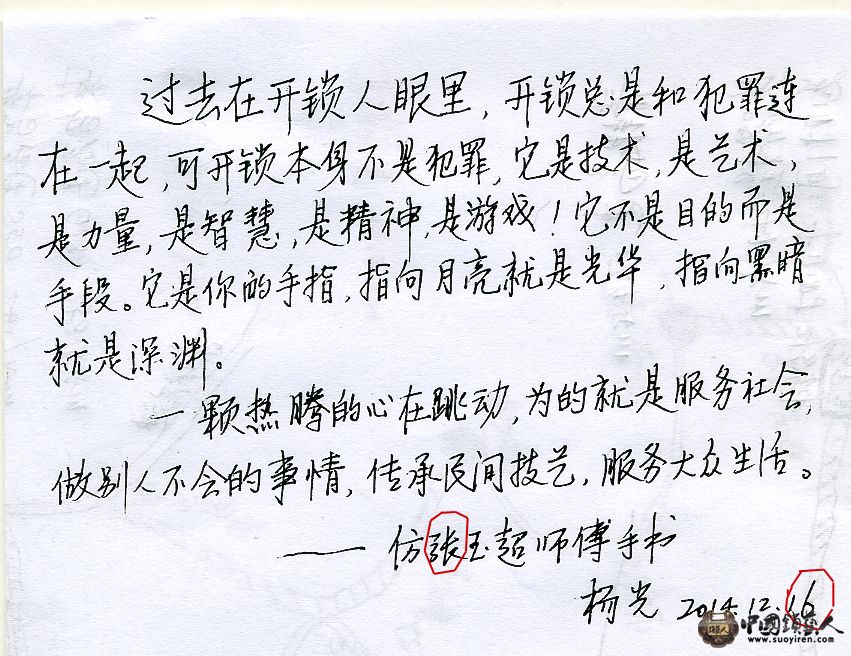 过去在开锁人眼里，开锁总是和犯罪连
在一起，可开锁本身不是犯罪，它是技术，是艺术，
是力量，是智慧，是精神，是游戏！它不是目的而是
手段。它是你的手指，指向月亮就是光华，指向黑暗
就是深渊。
一颗热腾的心在跳动，为的就是服务社会，
做别人不会的事情，传承民间技艺，服务大众生活。
——仿張玉超师傅手书
杨光 2014.12.16
中國鎖藝人
www.suoyiren.com